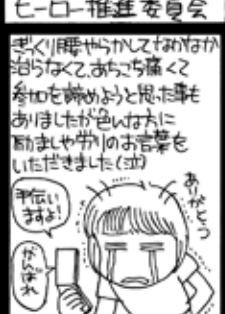 ヒーロー推進委員会
ぎっくり腰やらかしてなかなか
治らなくて、あちこち痛くて
参加を諦めようと思った事も
ありましたが色んな方に
励ましや労りのお言葉を
いただきました(泣)
ありがとう
手伝い
ますよ!
がんばれ